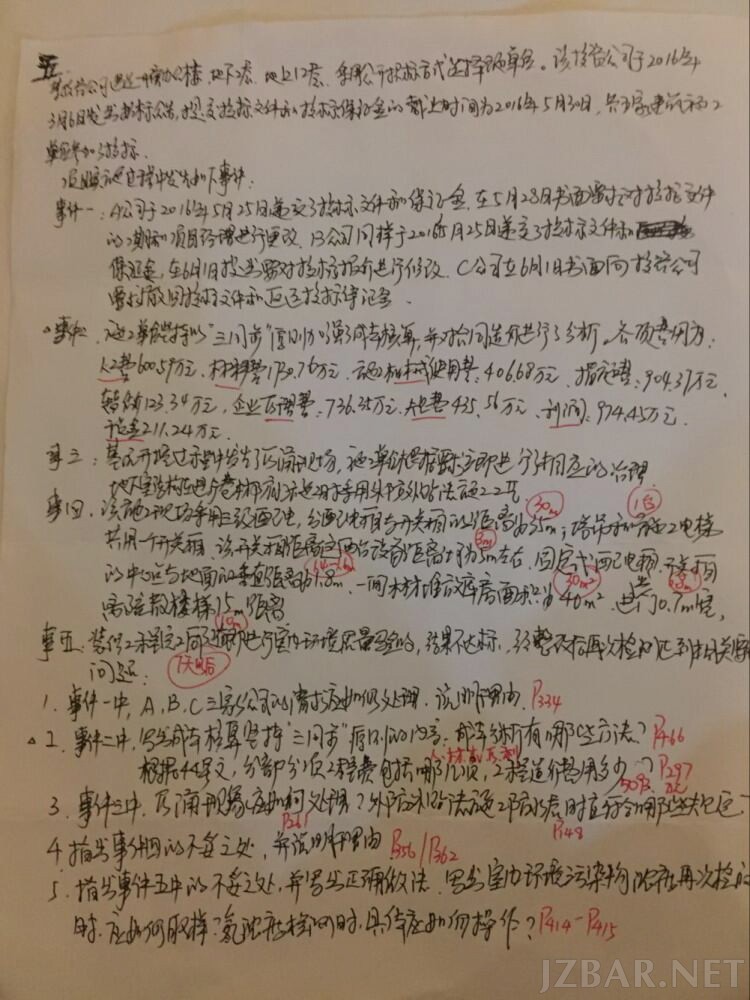 五
某投资公司建造一幢办公楼,地下2层,地上12层,采用公开招标方式选择施工单位。该投资公司于2016年4
月6日发出招标公告,提交投标文件和投标保证金的截止时间为2016年5月30日,共 家建筑施工
单位参加了投标.
项目施工过程中发生如下事件:
事件一:A公司于2016年5月25日递交了投标文件和保证金,在5月28日书面要求对投标文件
的 和项目经理进行更改,B公司同样于2016年5月25日递交了投标文件和
保证金,在6月1日提出要对投标报价进行修改,C公司在6月1日书面向投资公司
要求撤回投标文件和返还投标保证金.
事件二、施工单位坚持以"三同步"原则加强成本核算,并对合同造价进行了分析。各项费用为:
人工费600.59万元,材料费1730.76万元,施工机械使用费:406.68万元,措施费:904.37万元
暂估价123.34万元,企业管理费:736.35万元,规费435.56万元、利润:974.45万元
211.24万元.
事三:基坑开挖过程中发生了管涌现场,施工单位 立即进行相应的治理
地下室 进行卷材防水 采用外防外贴法施工
事四、该施工现场采用三级配电,分配电箱与开关箱的距离为35m;塔吊和施工电梯
30m
1台
共用一个开关箱,该开关箱距离这两台设备距离分别为5m左右,固定式配电箱、开关箱
3m
的中心点与地面的垂直距离为1.8m,一间木材堆放库房面积为40m²,进 0.7m宽,
1.4-1.6m
30m²
0.8m
离疏散楼梯15m距离
10m
事五:装修工程完工 进行室内环境质量验收,结果不达标,经整改后再次检测达到相关要求
7天后
问题:
1. 事件一中,A、B、C三家公司的请求应如何处理。说明理由。P334
2. 事件二中,写出成本核算坚持"三同步"原则的内容,成本分析有哪些方法?P466
根据44号文,分部分项工程费包括哪几项,工程造价费用多少?P297
3. 事件三中,管涌现象应如何处理?外防外贴法施工防水层时应符合哪些规定
P261
P148
4. 指出事件四的不妥之处,并说明理由 P356/P362
5. 指出事件五中的不妥之处,并写出正确做法。写出室内环境污染物浓度再次检测
时,应如何取样?氡浓度检测时,具体应如何操作?P414-P415
JZBAR.NET